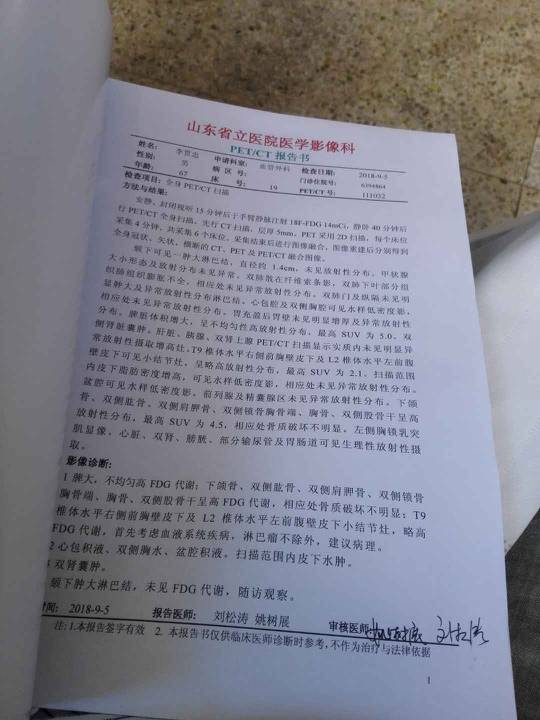 山东省立医院医学影像科
PET/CT 报告书
姓名: 李贯忠 申请科室: 血管外科 检查日期: 2018-9-5
性别: 男 病区号: 门诊住院号: 6394864
年龄: 67 床号: 19 PET/CT号: 111032
检查项目: 全身 PET/CT 扫描
方法与结果:
安静、封闭视听 15 分钟后于手臂静脉注射 18F-FDG 14mCi, 静卧 40 分钟后
行 PET/CT 全身扫描。先行 CT 扫描, 层厚 5mm。PET 采用 2D 扫描, 每个床位
采集 4 分钟, 共采集 6 个床位。采集结束后进行图像融合。图像重建后分别得到
全身冠状、矢状、横断的 CT、PET 及 PET/CT 融合图像。
颏下可见一肿大淋巴结, 直径约 1.4cm, 未见放射性分布。甲状腺
大小形态及放射分布未见异常。双肺散在纤维索条影, 双肺下叶部分组
织肺组织膨胀不全, 相应处未见异常放射性分布。双肺门及纵隔未见明
显肿大及异常放射性分布淋巴结。心包腔及双侧胸腔可见水样低密度影,
相应处未见异常放射性分布。胃充盈后胃壁未见明显增厚及异常放射性
分布。脾脏体积增大, 呈不均匀性高放射性分布, 最高 SUV 为 5.0。双
侧肾脏囊肿。肝脏、胰腺、双肾上腺 PET/CT 扫描显示实质内未见明显异
常放射性摄取增高灶。T9 椎体水平右侧前胸壁皮下及 L2 椎体水平左前腹
壁皮下可见小结节灶, 呈略高放射性分布, 最高 SUV 为 2.1。扫描范围
内皮下脂肪密度增高, 可见水样低密度影, 相应处未见异常放射性分布。
盆腔可见水样低密度影。前列腺及精囊腺区未见异常放射性分布。下颌
骨、双侧肱骨、双侧肩胛骨、双侧锁骨胸骨端、胸骨、双侧股骨干呈高
放射性分布, 最高 SUV 为 4.5, 相应处骨质破坏不明显。左侧胸锁乳突
肌显像。心脏、双肾、膀胱、部分输尿管及胃肠道可见生理性放射性摄
取。
影像诊断:
1 脾大, 不均匀高 FDG 代谢; 下颌骨、双侧肱骨、双侧肩胛骨、双侧锁骨
胸骨端、胸骨、双侧股骨干呈高 FDG 代谢, 相应处骨质破坏不明显; T9
椎体水平右侧前胸壁皮下及 L2 椎体水平左前腹壁皮下小结节灶, 略高
FDG 代谢, 首先考虑血液系统疾病, 淋巴瘤不除外, 建议病理。
2 心包积液、双侧胸水、盆腔积液。扫描范围内皮下水肿。
3 双肾囊肿。
颏下肿大淋巴结, 未见 FDG 代谢, 随访观察。
时间: 2018-9-5 报告医师: 刘松涛 姚树展 审核医师:
注: 1.本报告签字有效 2. 本报告书仅供临床医师诊断时参考, 不作为治疗与法律依据
1